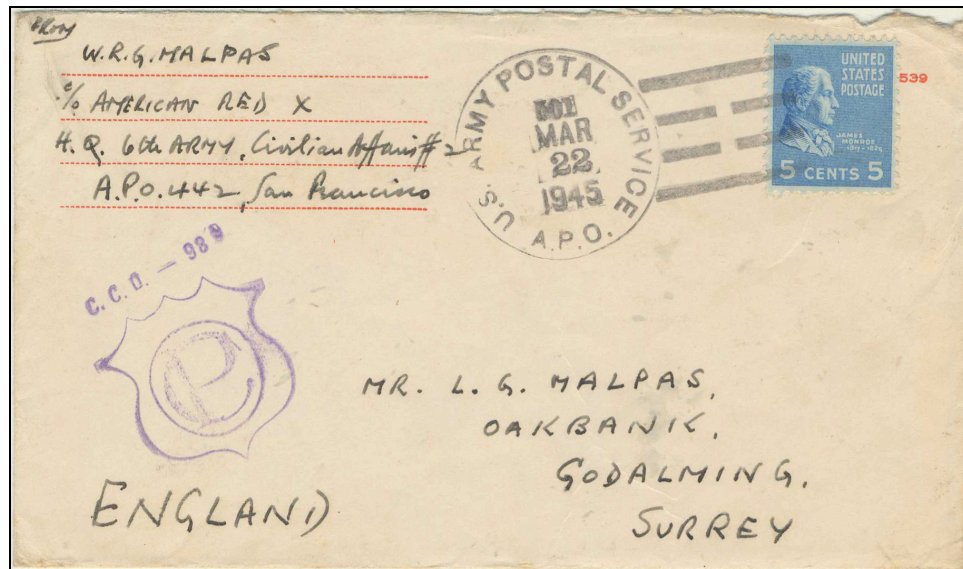 FROM
W.R.G. MALPAS
c/o AMERICAN RED X
H.Q. 6th ARMY, Civilian Affairs # 2
A.P.O. 442, San Francisco
U.S. ARMY POSTAL SERVICE
A.P.O.
MAR
22
1945
UNITED
STATES
POSTAGE
JAMES
MONROE
1817-1825
5 CENTS 5
539
C.C.D. - 989
P
MR. L. G. MALPAS,
OAKBANK,
GODALMING.
SURREY
ENGLAND